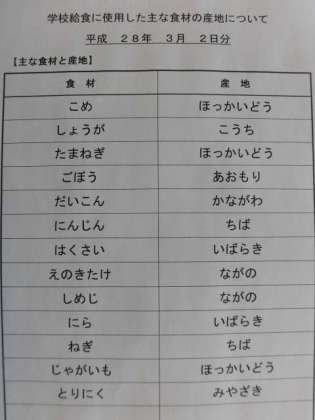 学校給食に使用した主な食材の産地について
平成 28年 3月 2日分
【主な食材と産地】
食材 産地
こめ ほっかいどう
しょうが こうち
たまねぎ ほっかいどう
ごぼう あおもり
だいこん かながわ
にんじん ちば
はくさい いばらき
えのきたけ ながの
しめじ ながの
にら いばらき
ねぎ ちば
じゃがいも ほっかいどう
とりにく みやざき